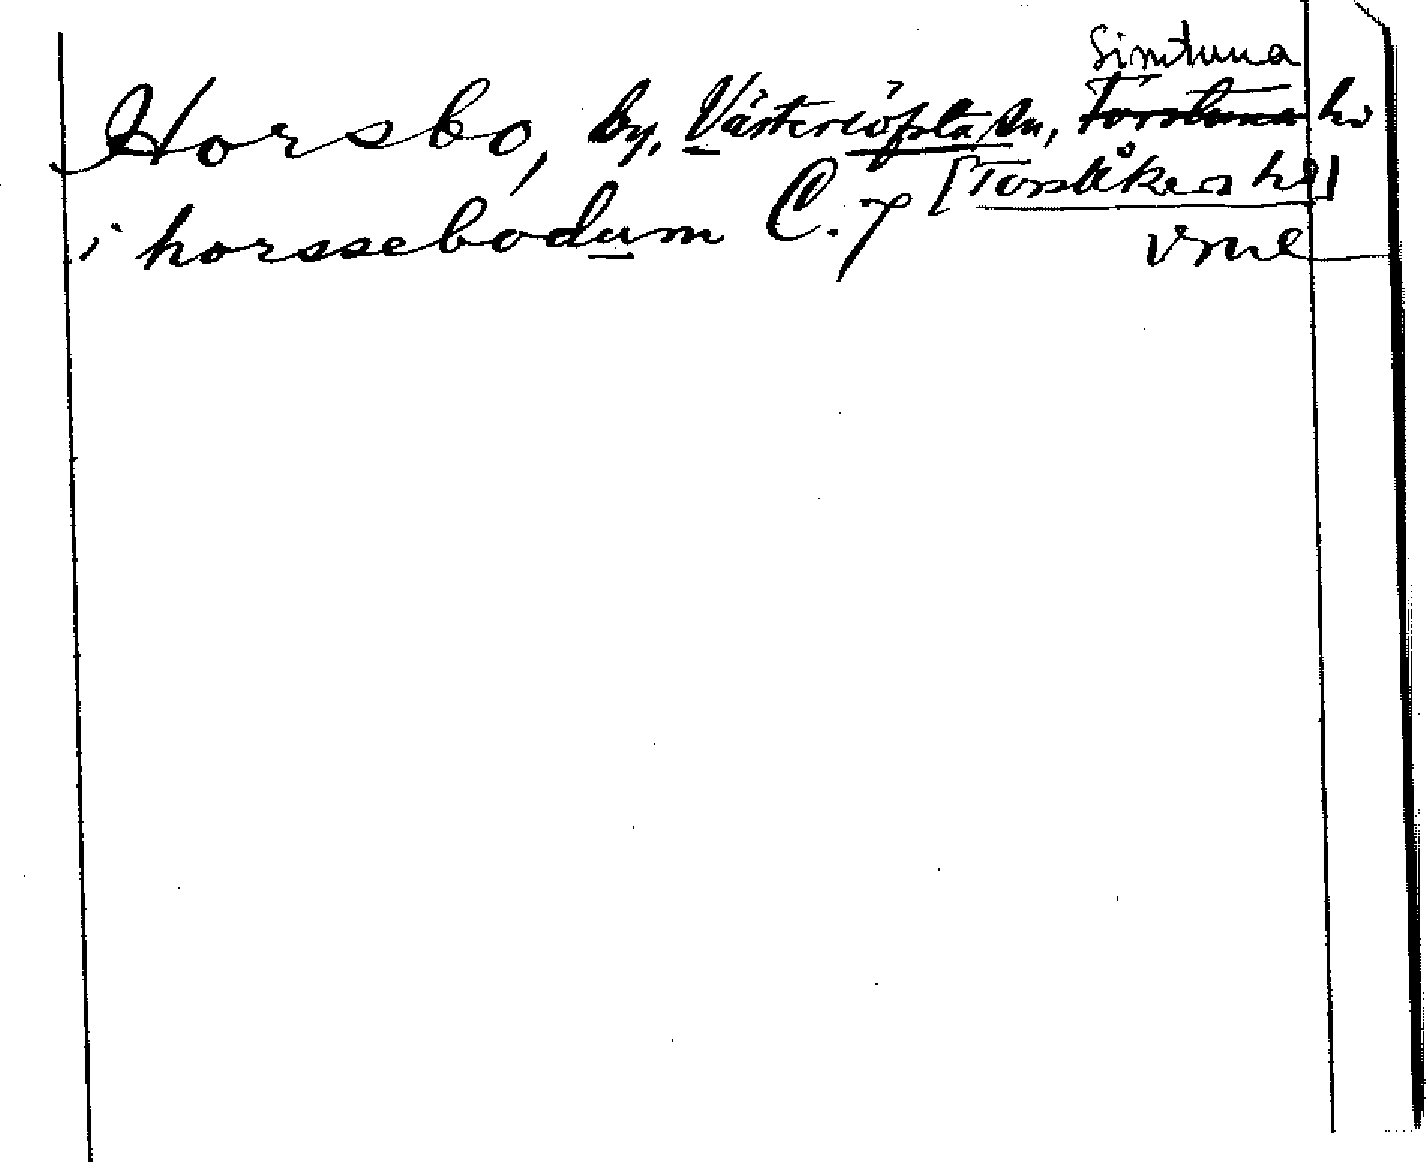 Simtuna
Horsbo, by, Västerlöpsta sn, Torstuna hd
i horssebodum C. 7 [Torsåkers hd]
vme